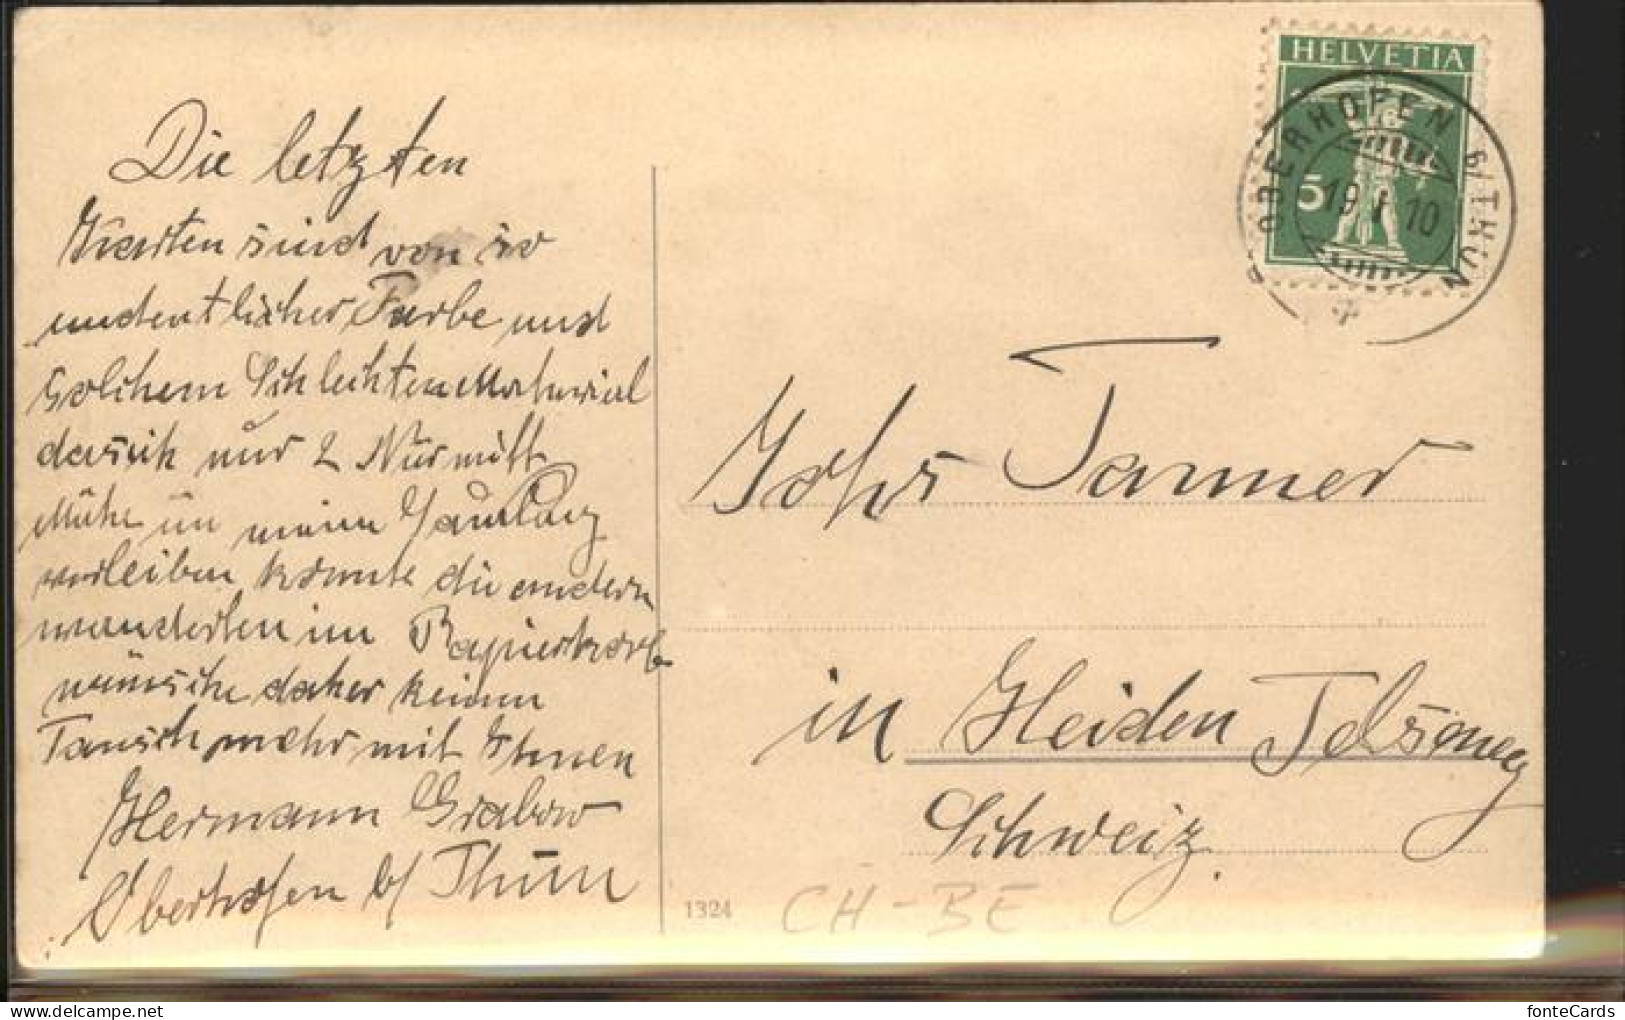 Die letzten
Karten sind von so
undeutlicher Farbe und
solchem schlechten Material
dass ich nur 2 Nur mitt
Mühe in meine
verleiben konnte die andern
wanderten im Papierkorb
wünsche daher keinen
Tausch mehr mit Ihnen
Hermann Grabow
Oberhofen b/ Thun
HELVETIA
5
OBERHOFEN b/THUN
19 I 10
Johs Tanner
in Heiden
Schweiz.
1324
CH-BE
fonteCards